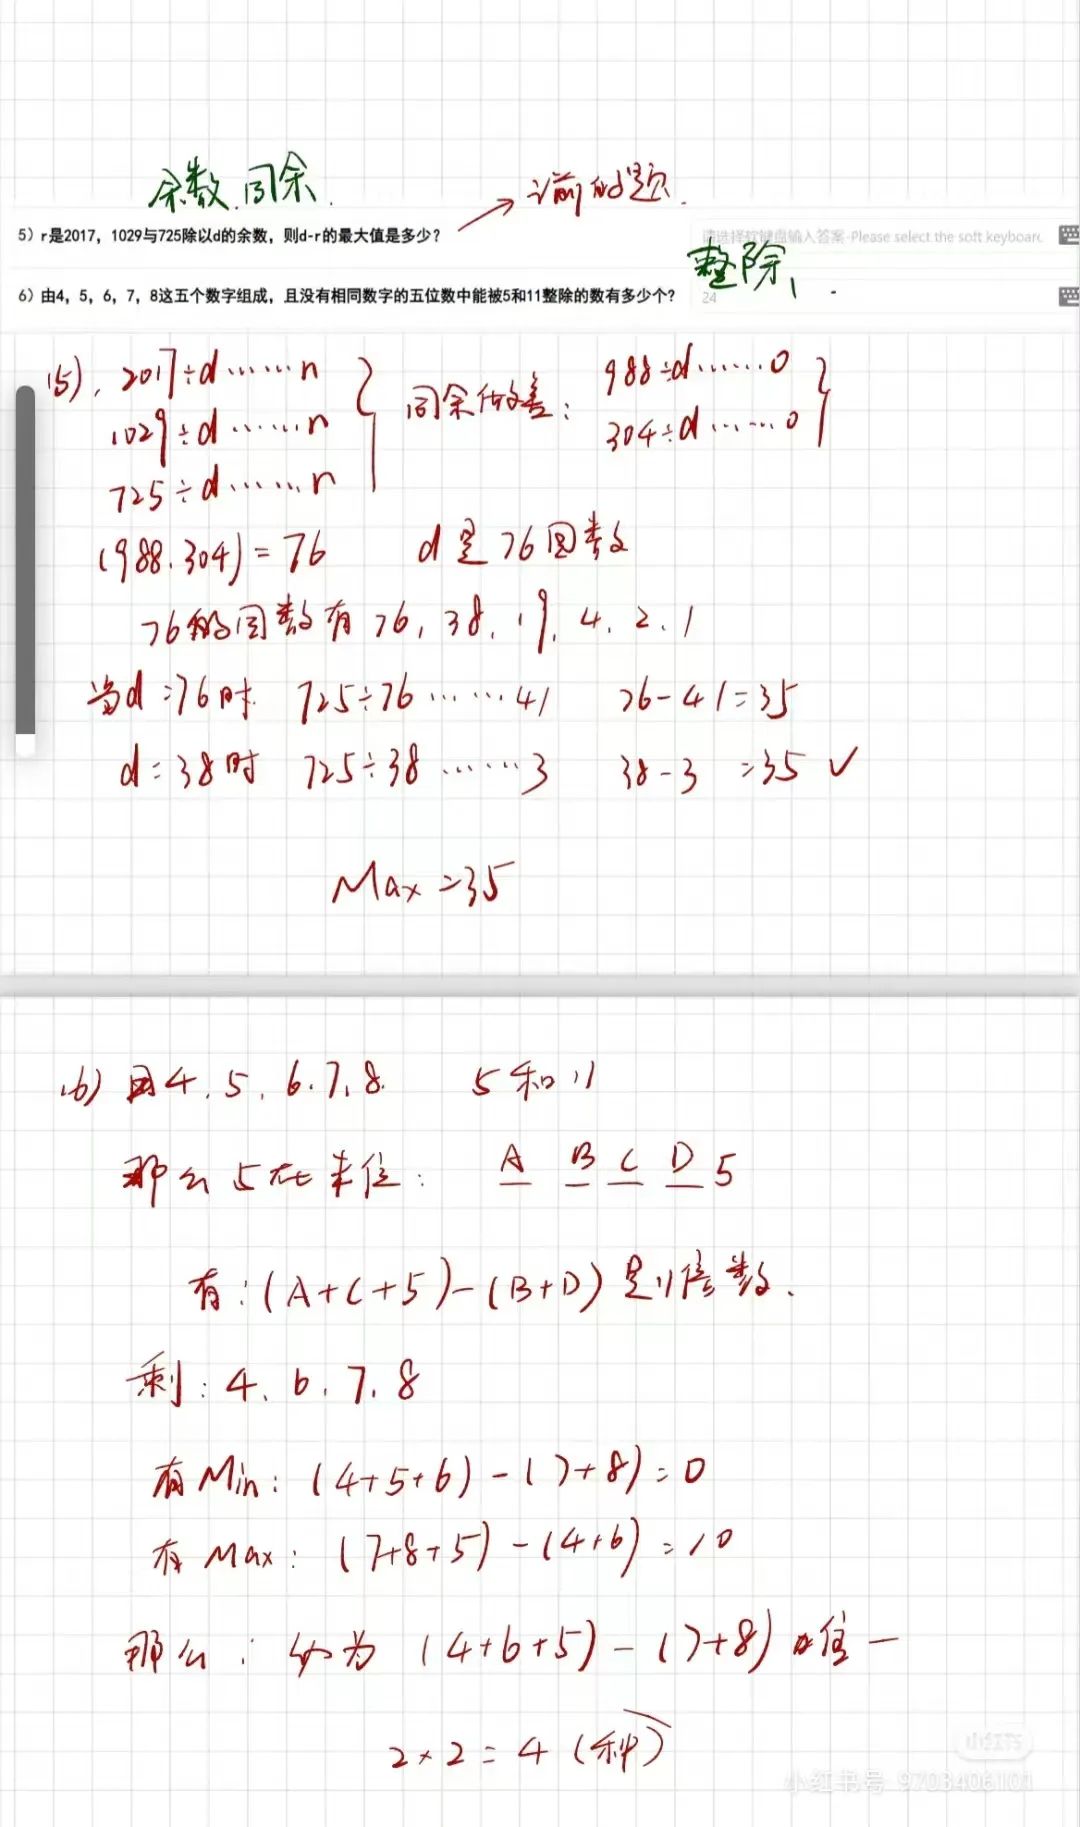 余数、同余.
→ 以前的题.
5）r是2017，1029与725除以d的余数，则d-r的最大值是多少？
请选择软键盘输入答案-Please select the soft keyboard
整除,
6）由4，5，6，7，8这五个数字组成，且没有相同数字的五位数中能被5和11整除的数有多少个？
24
(5), 2017÷d……n
1029÷d……n
725÷d……n
同余作差:
988÷d……0
304÷d……0
(988.304)=76 d是76因数
76的因数有76, 38, 19, 4, 2, 1
当d=76时 725÷76……41 76-41=35
d=38时 725÷38……3 38-3=35 ✓
Max=35
(6) 因4, 5, 6, 7, 8. 5和11
那么5在末位: A B C D 5
有:(A+C+5)-(B+D)是11倍数.
剩: 4, 6, 7, 8
有Min: (4+5+6)-(7+8)=0
有Max: (7+8+5)-(4+6)=10
那么: 仅为 (4+6+5)-(7+8) 唯一
2×2=4(种)
小红书
小红书号 9703406101